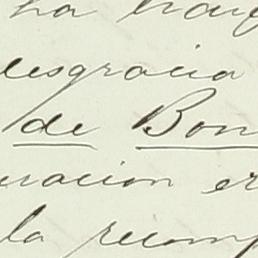 ha
desgracia
de Bon
uacion er
la recomp